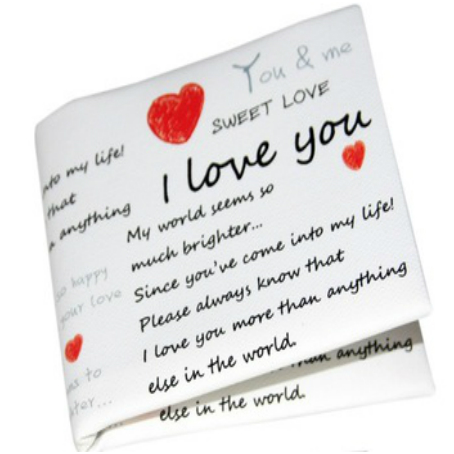 You & me
SWEET LOVE
I love you
My world seems so
much brighter...
Since you've come into my life!
Please always know that
I love you more than anything
else in the world.
into my life!
that
anything
so happy
your love
to
than anything
else in the world.